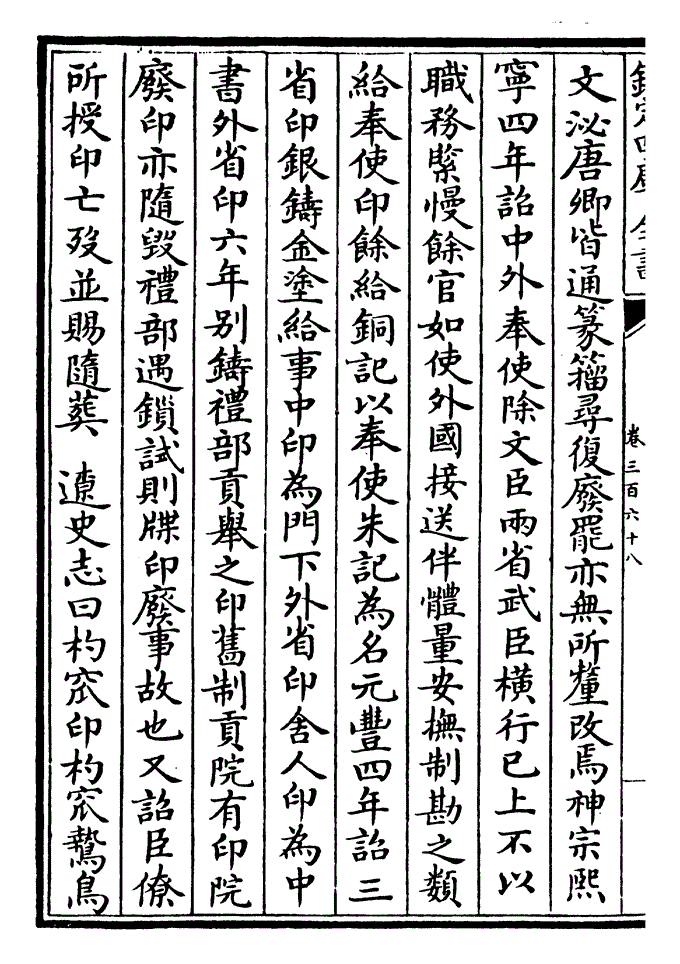 欽定四庫全書
卷三百六十八
文泌唐卿皆通篆籀尋復廢罷亦無所釐改焉神宗熙
寧四年詔中外奉使除文臣兩省武臣橫行已上不以
職務緊慢餘官如使外國接送伴體量安撫制勘之類
給奉使印餘給銅記以奉使朱記為名元豐四年詔三
省印銀鑄金塗給事中印為門下外省印舍人印為中
書外省印六年别鑄禮部貢舉之印舊制貢院有印院
廢印亦隨毀禮部遇鎖試則牒印廢事故也又詔臣僚
所授印亡歿並賜隨葬　遼史志曰杓窊印杓窊鷙鳥